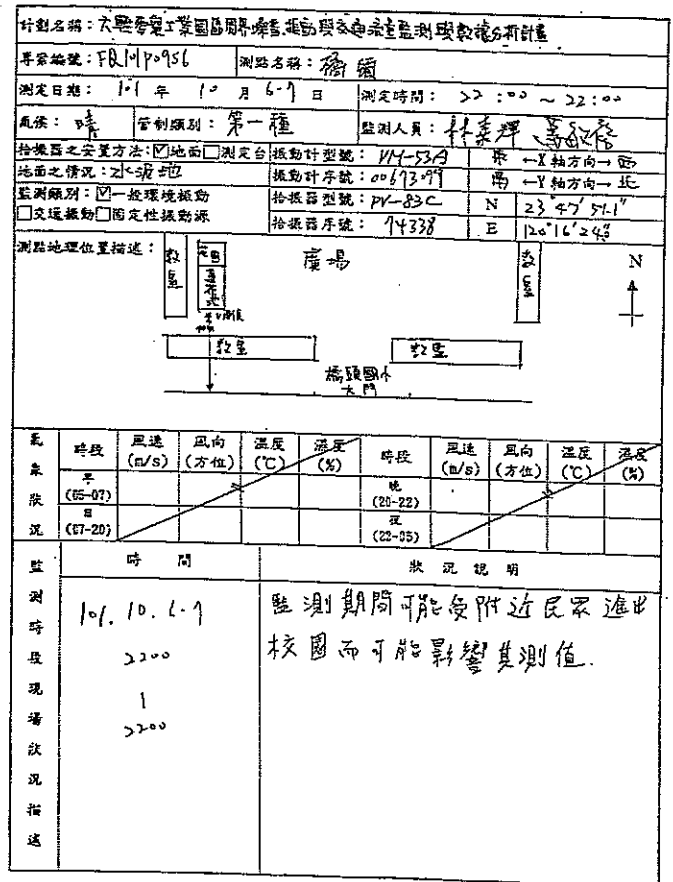 計劃名稱：六輕麥寮工業園區周界噪音、振動與交通流量監測與數據分析計畫
專案編號：FB101P0956 測點名稱：橋頭
測定日期：101 年 10 月 6-7 日 測定時間：22:00 ~ 22:00
氣候：晴 管制類別：第一種 監測人員：林
拾振器之安置方法：☑地面□測定台 振動計型號：VM-53A ←X 軸方向→ 西
地面之情況：水泥地 振動計序號：00673099 ←Y 軸方向→ 北
監測類別：☑一般環境振動 拾振器型號：PV-83C N 23°47'51.1"
□交通振動□固定性振動源 拾振器序號：74338 E 120°16'24.8"
測點地理位置描述：
教室 花圃 廣場 教室 N
教室 教室
橋頭國小
大門
氣象狀況 時段 風速(m/s) 風向(方位) 溫度(℃) 濕度(%) 時段 風速(m/s) 風向(方位) 溫度(℃) 濕度(%)
早(05-07) 晚(20-22)
日(07-20) 夜(22-05)
監測時段現場狀況描述 時間 狀況說明
101.10.6-7 監測期間可能受附近民眾進出
2200 校園而可能影響其測值.
|
2200